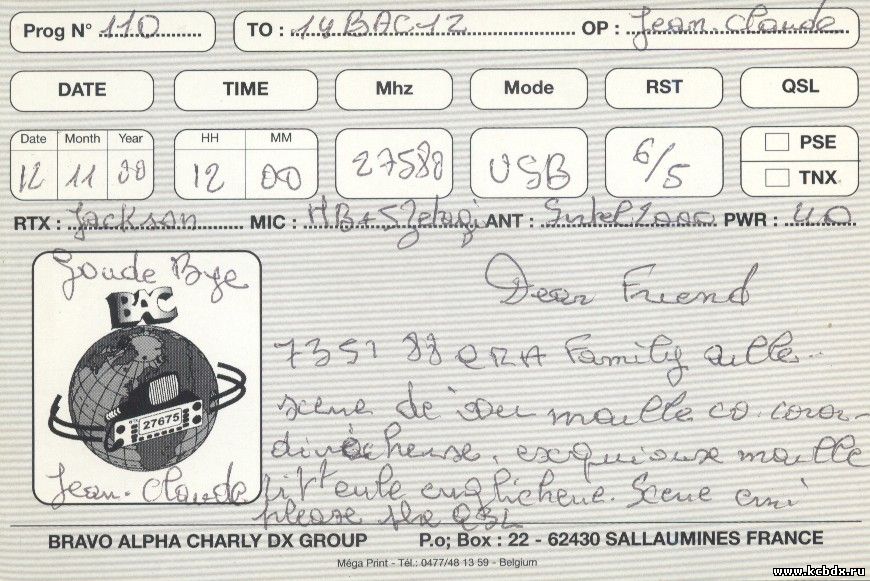 Prog N° 110 TO : 14 BAC 12 OP : Jean Claude
DATE TIME Mhz Mode RST QSL
Date Month Year HH MM
12 11 00 12 00 27588 USB 6/5 PSE
TNX
RTX : Jackson MIC : MB+5 Zetagi ANT : 2000 PWR : 40
Goude Bye
BAC
27675
Jean-Claude
Dear Friend
7351 88 QRA Family
scene de sou moulle co.coror-
moulle
englichene. Scene emi
please the QSL
BRAVO ALPHA CHARLY DX GROUP P.o; Box : 22 - 62430 SALLAUMINES FRANCE
Méga Print - Tél.: 0477/48 13 59 - Belgium
www.kcbdx.ru